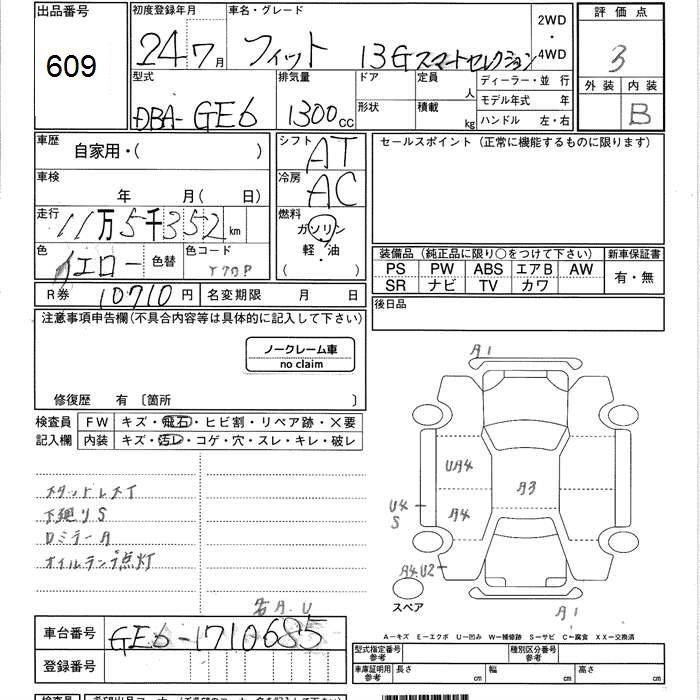 出品番号
609
初度登録年月 車名・グレード 2WD・4WD
24年7月 フィット 13G スマートセレクション
評価点
3
外装 内装
B
型式 排気量 ドア 定員 人 ディーラー・並 行
DBA-GE6 1300cc 形状 積載 kg モデル年式 年
ハンドル 左・右
車歴 自家用・( )
シフト AT
セールスポイント(正常に機能するものに限ります)
車検 年 月( 日)
冷房 AC
走行 11万5千352km
燃料 ガソリン 軽・油 ( )
色 イエロー 色替 色コード Y70P
装備品(純正品に限り○をつけて下さい) 新車保証書
PS PW ABS エアB AW 有・無
SR ナビ TV カワ
R券 10710円 名変期限 月 日
後日品
注意事項申告欄(不具合内容等は具体的に記入して下さい)
ノークレーム車
no claim
修復歴 有 〔箇所 〕
検査員 FW キズ・飛石・ヒビ割・リペア跡・×要
記入欄 内装 キズ・汚レ・コゲ・穴・スレ・キレ・破レ
スタッドレスT
下廻りS
ロミラーA
オイルランプ点灯
右A.U
A1
UA4
A3
U4
S
A4
A4.U2
スペア
A1
A−キズ E−エクボ U−凹み W−補修跡 S−サビ C−腐食 XX−交換済
車台番号 GE6-1710685
登録番号
型式指定番号 参考 種別区分番号 参考
車庫証明用 参考 長さ cm 幅 cm 高さ cm